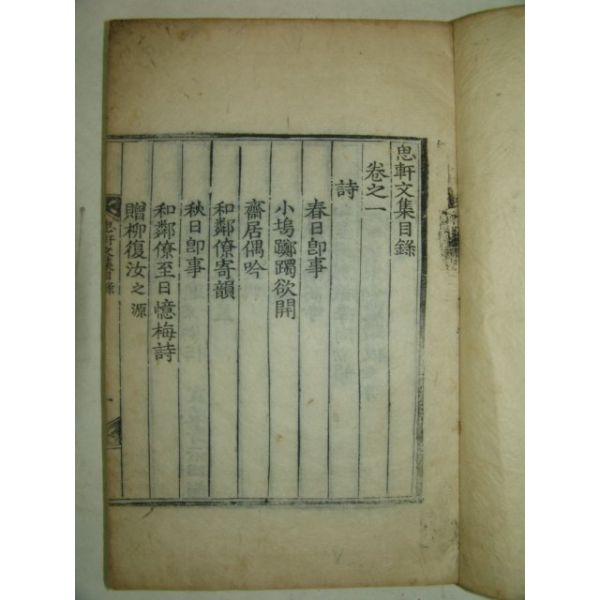 思軒文集目錄
卷之一
詩
春日卽事
小塢躑躅欲開
齋居偶吟
和鄰僚寄韻
秋日卽事
和鄰僚至日憶梅詩
贈柳復汝之源
思軒文集目錄
一